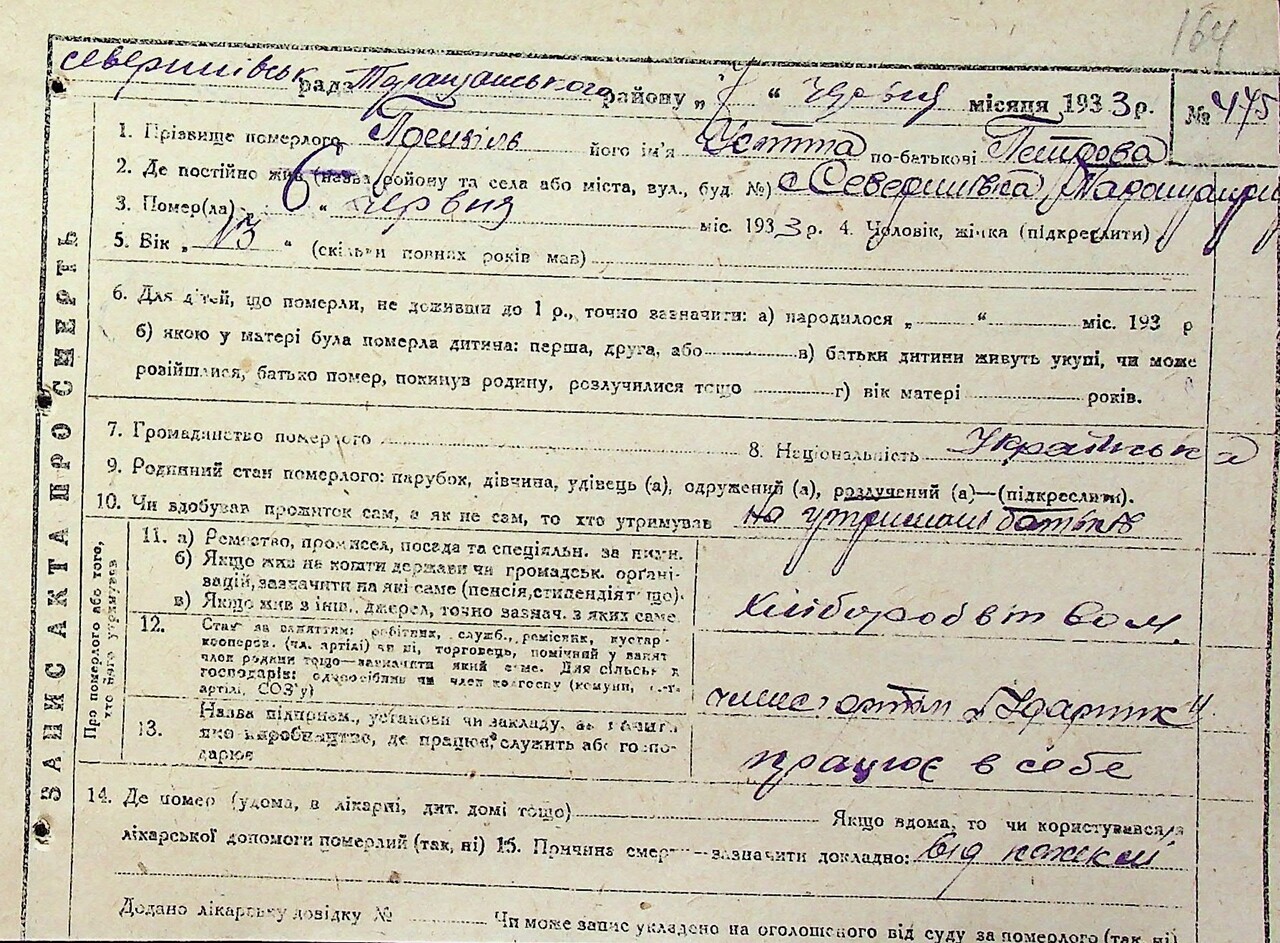 164
северинівськ рада Таращанського району „ 7 “ червня місяця 1933 р. № 445
1. Прізвище померлого його ім'я Устина по-батькові Петрова
2. Де постійно жив (назва району та села або міста, вул., буд №) с Северинівка
3. Помер(ла) „ 6 “ червня міс. 1933 р. 4. Чоловік, жінка (підкреслити)
5. Вік „ 13 “ (скільки повних років мав)
6. Для дітей, що померли, не доживши до 1 р., точно зазначити: а) народилося „ “ міс. 193 р
б) якою у матері була померла дитина: перша, друга, або в) батьки дитини живуть укупі, чи може
розійшлися, батько помер, покинув родину, розлучилися тощо г) вік матері років.
7. Громадянство померлого 8. Національність Українська
9. Родинний стан померлого: парубок, дівчина, удівець (а), одружений (а), розлучений (а)—(підкреслити).
10. Чи вдобував прожиток сам, а як не сам, то хто утримував на утримані батьків
11. а) Ремество, промисел, посада та спеціяльн. за ними.
б) Якщо жив на кошти держави чи громадськ. орґані-
зацій, зазначити на які саме (пенсія, стипендіят що).
в) Якщо жив з інш. джерел, точно зазнач. з яких саме
хліборобством.
12. Стан за заняттям: робітник, служб., ремісник, кустар
кооперов. (чл. артілі) чи ні, торговець, помічний у занят
член родини тощо—зазначити який саме. Для сільськ
господарів: одноосібник чи член колгоспу (комуни,
артілі, СОЗ'у)
член артіли
13. Назва підприєм., установи чи закладу, а
яке виробництво, де працює, служить або госпо-
дарює
працює в себе
14. Де помер (удома, в лікарні, дит. домі тощо) Якщо вдома, то чи користувався
лікарської допомоги померлий (так, ні) 15. Причина смерти—зазначити докладно: від
Додано лікарську довідку № Чи може запис укладено на оголошеного від суду за померлого (так, ні)
ЗАПИС АКТА ПРО СМЕРТЬ
Про померлого або того,
хто його утримував